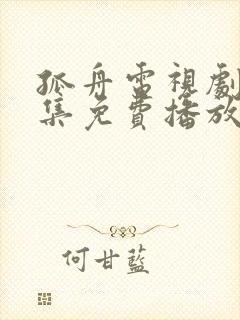 孤舟電視劇
集免費播放
何甘藍